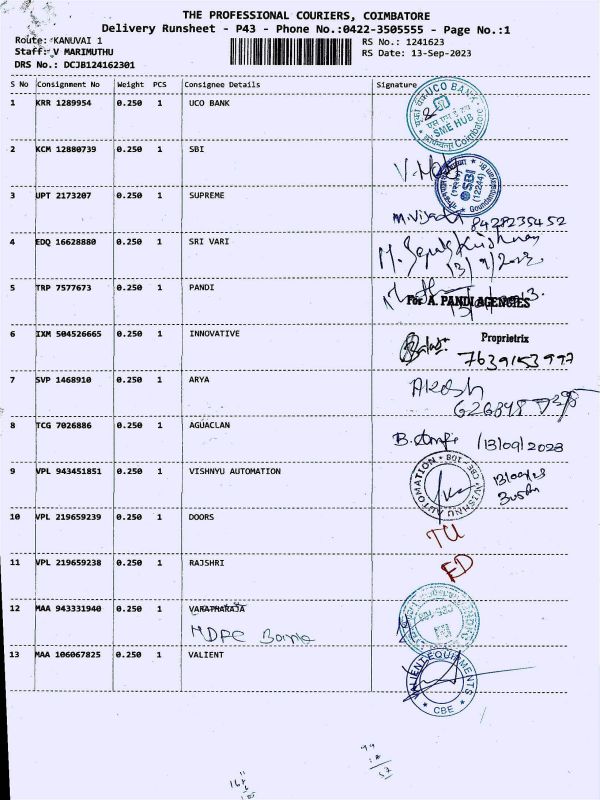 THE PROFESSIONAL COURIERS, COIMBATORE
Delivery Runsheet - P43 - Phone No.:0422-3505555 - Page No.:1
Route: KANUVAI 1
RS No.: 1241623
Staff: V MARIMUTHU
RS Date: 13-Sep-2023
DRS No.: DCJB124162301
S No Consignment No Weight PCS Consignee Details Signature
1 KRR 1289954 0.250 1 UCO BANK
UCO BANK
SME HUB
Coimbatore
2 KCM 12880739 0.250 1 SBI
SBI
(12244)
3 UPT 2173207 0.250 1 SUPREME
8428235452
4 EDQ 16628880 0.250 1 SRI VARI
13/9/2023
5 TRP 7577673 0.250 1 PANDI
For A. PANDI AGENCIES
Proprietrix
6 IXM 504526665 0.250 1 INNOVATIVE
Balaji
7639153997
7 SVP 1468910 0.250 1 ARYA
Akash
8 TCG 7026886 0.250 1 AGUACLAN
13/09/2023
9 VPL 943451851 0.250 1 VISHNYU AUTOMATION
VISHNU AUTOMATION
CBE
10 VPL 219659239 0.250 1 DOORS
11 VPL 219659238 0.250 1 RAJSHRI
12 MAA 943331940 0.250 1 VARAPRARAJA
13 MAA 106067825 0.250 1 VALIENT
VALIENT EQUIPMENTS
CBE